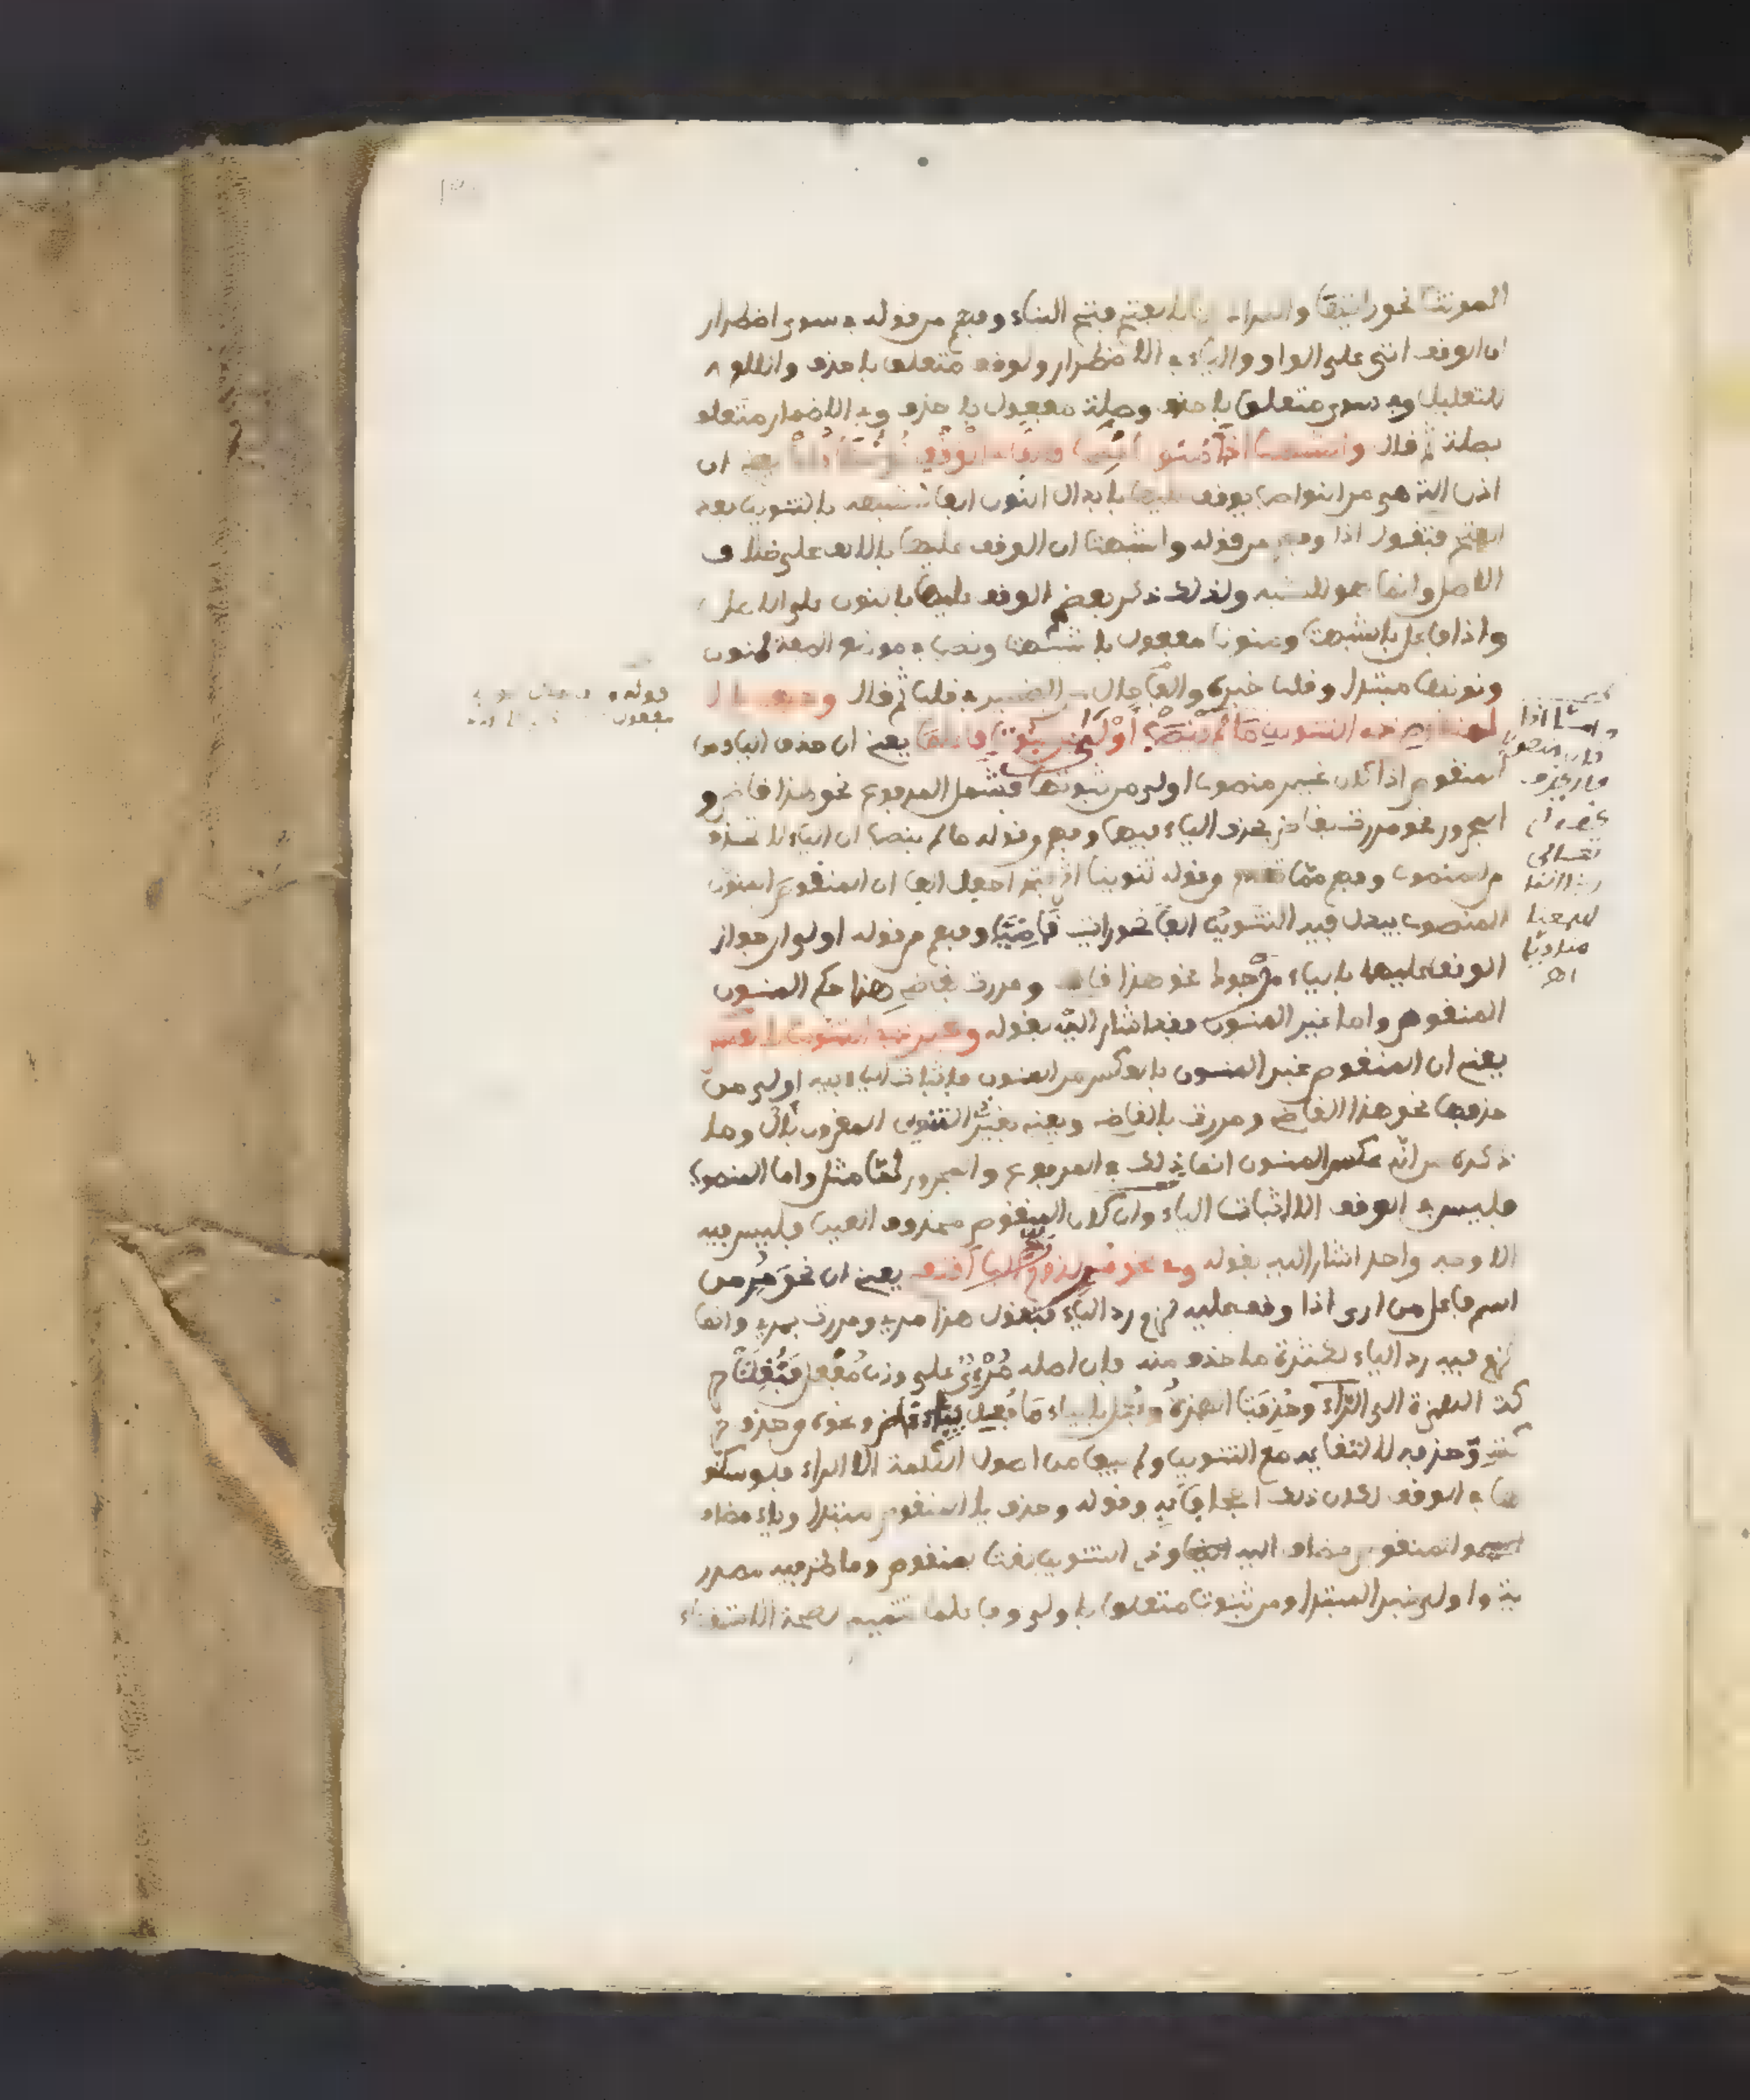 المونث نحو رايتها والمراد بالفتح فتح الهاء وفهم من قوله في سوى اضطرار
ان الوقف اتى على الواو والياء في الاضطرار ولوقف متعلق باحذف واللام
للتعليل وفي سوى متعلق باحذف وصلة مفعول باحذف وفي الاضمار متعلق
بصلة ثم قال واشبهت اذا منونا نصب فالفا في الوقف نونها قلب يعني ان
اذن التي هي من النواصب يوقف عليها بابدال النون الفا لشبهه بالتنوين بعد
الفتح فتقول اذا وفهم من قوله واشبهت ان الوقف عليها بالالف على خلاف
الاصل وانما هو للشبه ولذلك ذكر بعضهم الوقف عليها بالنون على الاصل
واذا فاعل باشبهت ومنونا مفعول باشبهت ونصب في موضع الصفة لمنون
ونونها مبتدا وقلب خبره والفا حال من الضمير في قلب ثم قال وحذف يا
المنقوص ذي التنوين ما لم ينصب اولى من ثبوت فاعلما يعني ان حذف الياء من
المنقوص اذا كان غير منصوب اولى من ثبوتها فشمل المرفوع نحو هذا قاض و
المجرور نحو مررت بقاض بحذف الياء فيهما وفهم من قوله ما لم ينصب ان الياء لا تحذف
من المنصوب وفهم مما تقدم وقوله تنوينا اثر فتح اجعل الفا ان المنقوص المنون
المنصوب يبدل فيه التنوين الفا نحو رايت قاضيا وفهم من قوله اولى ان جواز
الوقف عليها بالياء مرجوح نحو هذا قاضي ومررت بقاضي هذا حكم المنون
المنقوص واما غير المنون فقد اشار اليه بقوله وغير ذي التنوين بالعكس
يعني ان المنقوص غير المنون بالعكس من المنون فاثبات الياء فيه اولى من
حذفها نحو هذا القاضي ومررت بالقاضي ويعني بغير التنوين المقرون بال وما
ذكره من انه عكس المنون انما ذلك في المرفوع والمجرور كما مثل واما المنصوب
فليس في الوقف الا اثبات الياء وان كان المنقوص محذوف العين فليس فيه
الا وجه واحد اشار اليه بقوله وفي نحو مر لزوم رد اليا اقتفي يعني ان نحو مر من
اسم فاعل من ارى اذا وقف عليه لزم رد الياء فتقول هذا مري ومررت بمري وانما
لزم فيه رد الياء لكثرة ما حذف منه فان اصله مرئي على وزن مفعل فنقلت ح
كة الهمزة الى الراء وحذفت الهمزة وفعل بالياء ما فعل بياء قاض ونحوه وحذف ح
كته وحذفه لالتقائه مع التنوين ولم يبق من اصول الكلمة الا الراء فلو سكنو
ها في الوقف لكان ذلك اجحافا به وقوله وحذف يا المنقوص مبتدا وياء مضاف
والمنقوص مضاف اليه وذي التنوين نعت لمنقوص وما ظرفيه مصدر
ية واولى خبر المبتدا ومن ثبوت متعلق باولى وفاعلما تتميم لصحة الاستغناء
واما اذا
كان منصوبا